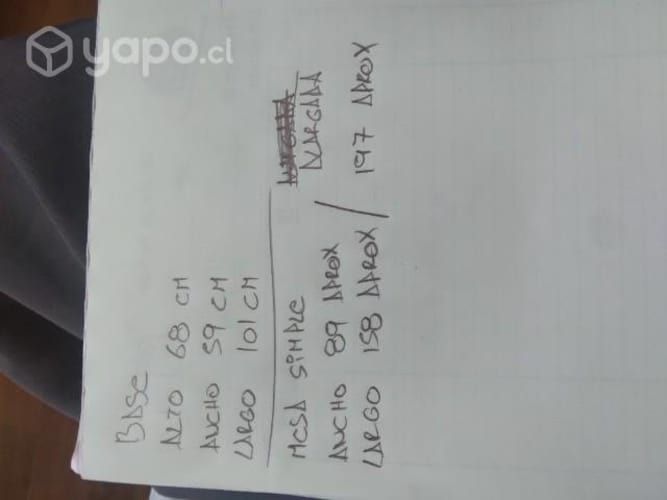 yapo.cl
BASE
ALTO 68 CM
ANCHO 59 CM
LARGO 101 CM
MESA SIMPLE ALARGADA
ANCHO 89 APROX /
LARGO 158 APROX / 197 APROX